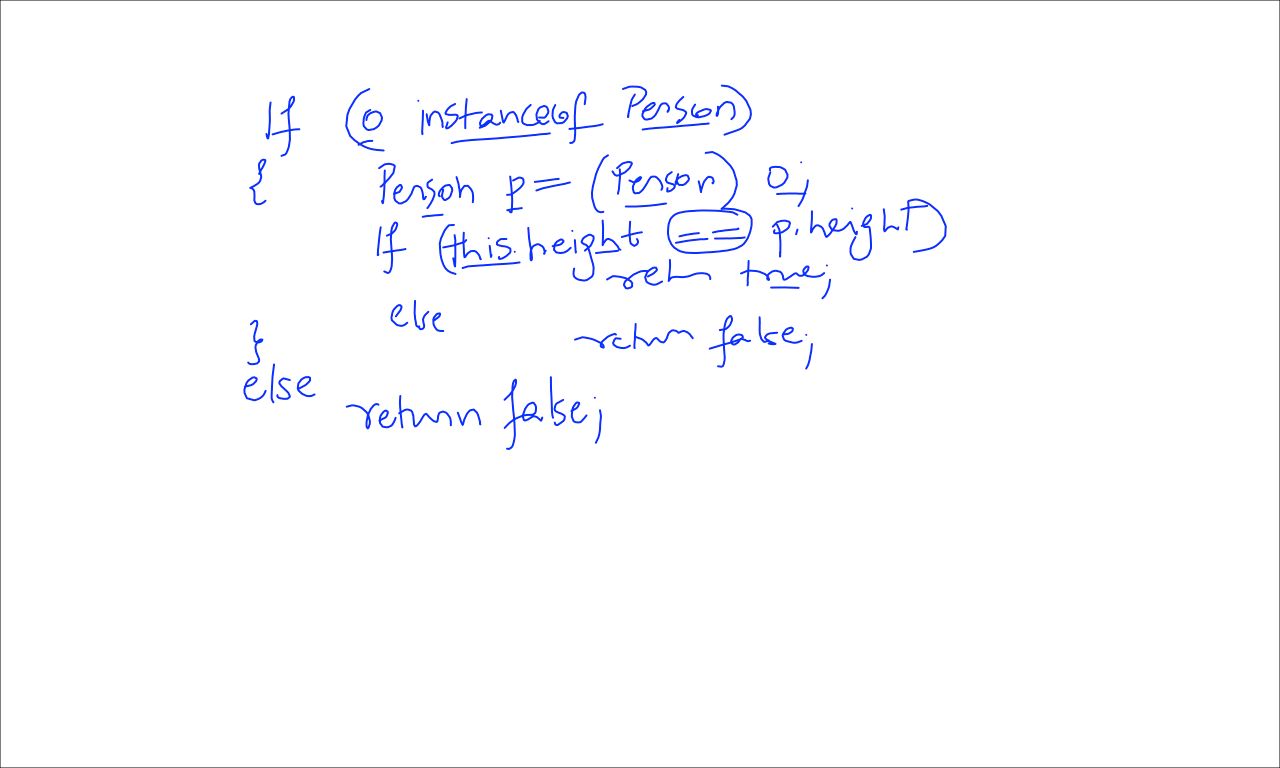 If (o instanceof Person)
{ Person p = (Person) o;
If (this.height == p.height)
return true;
else
return false;
}
else
return false;